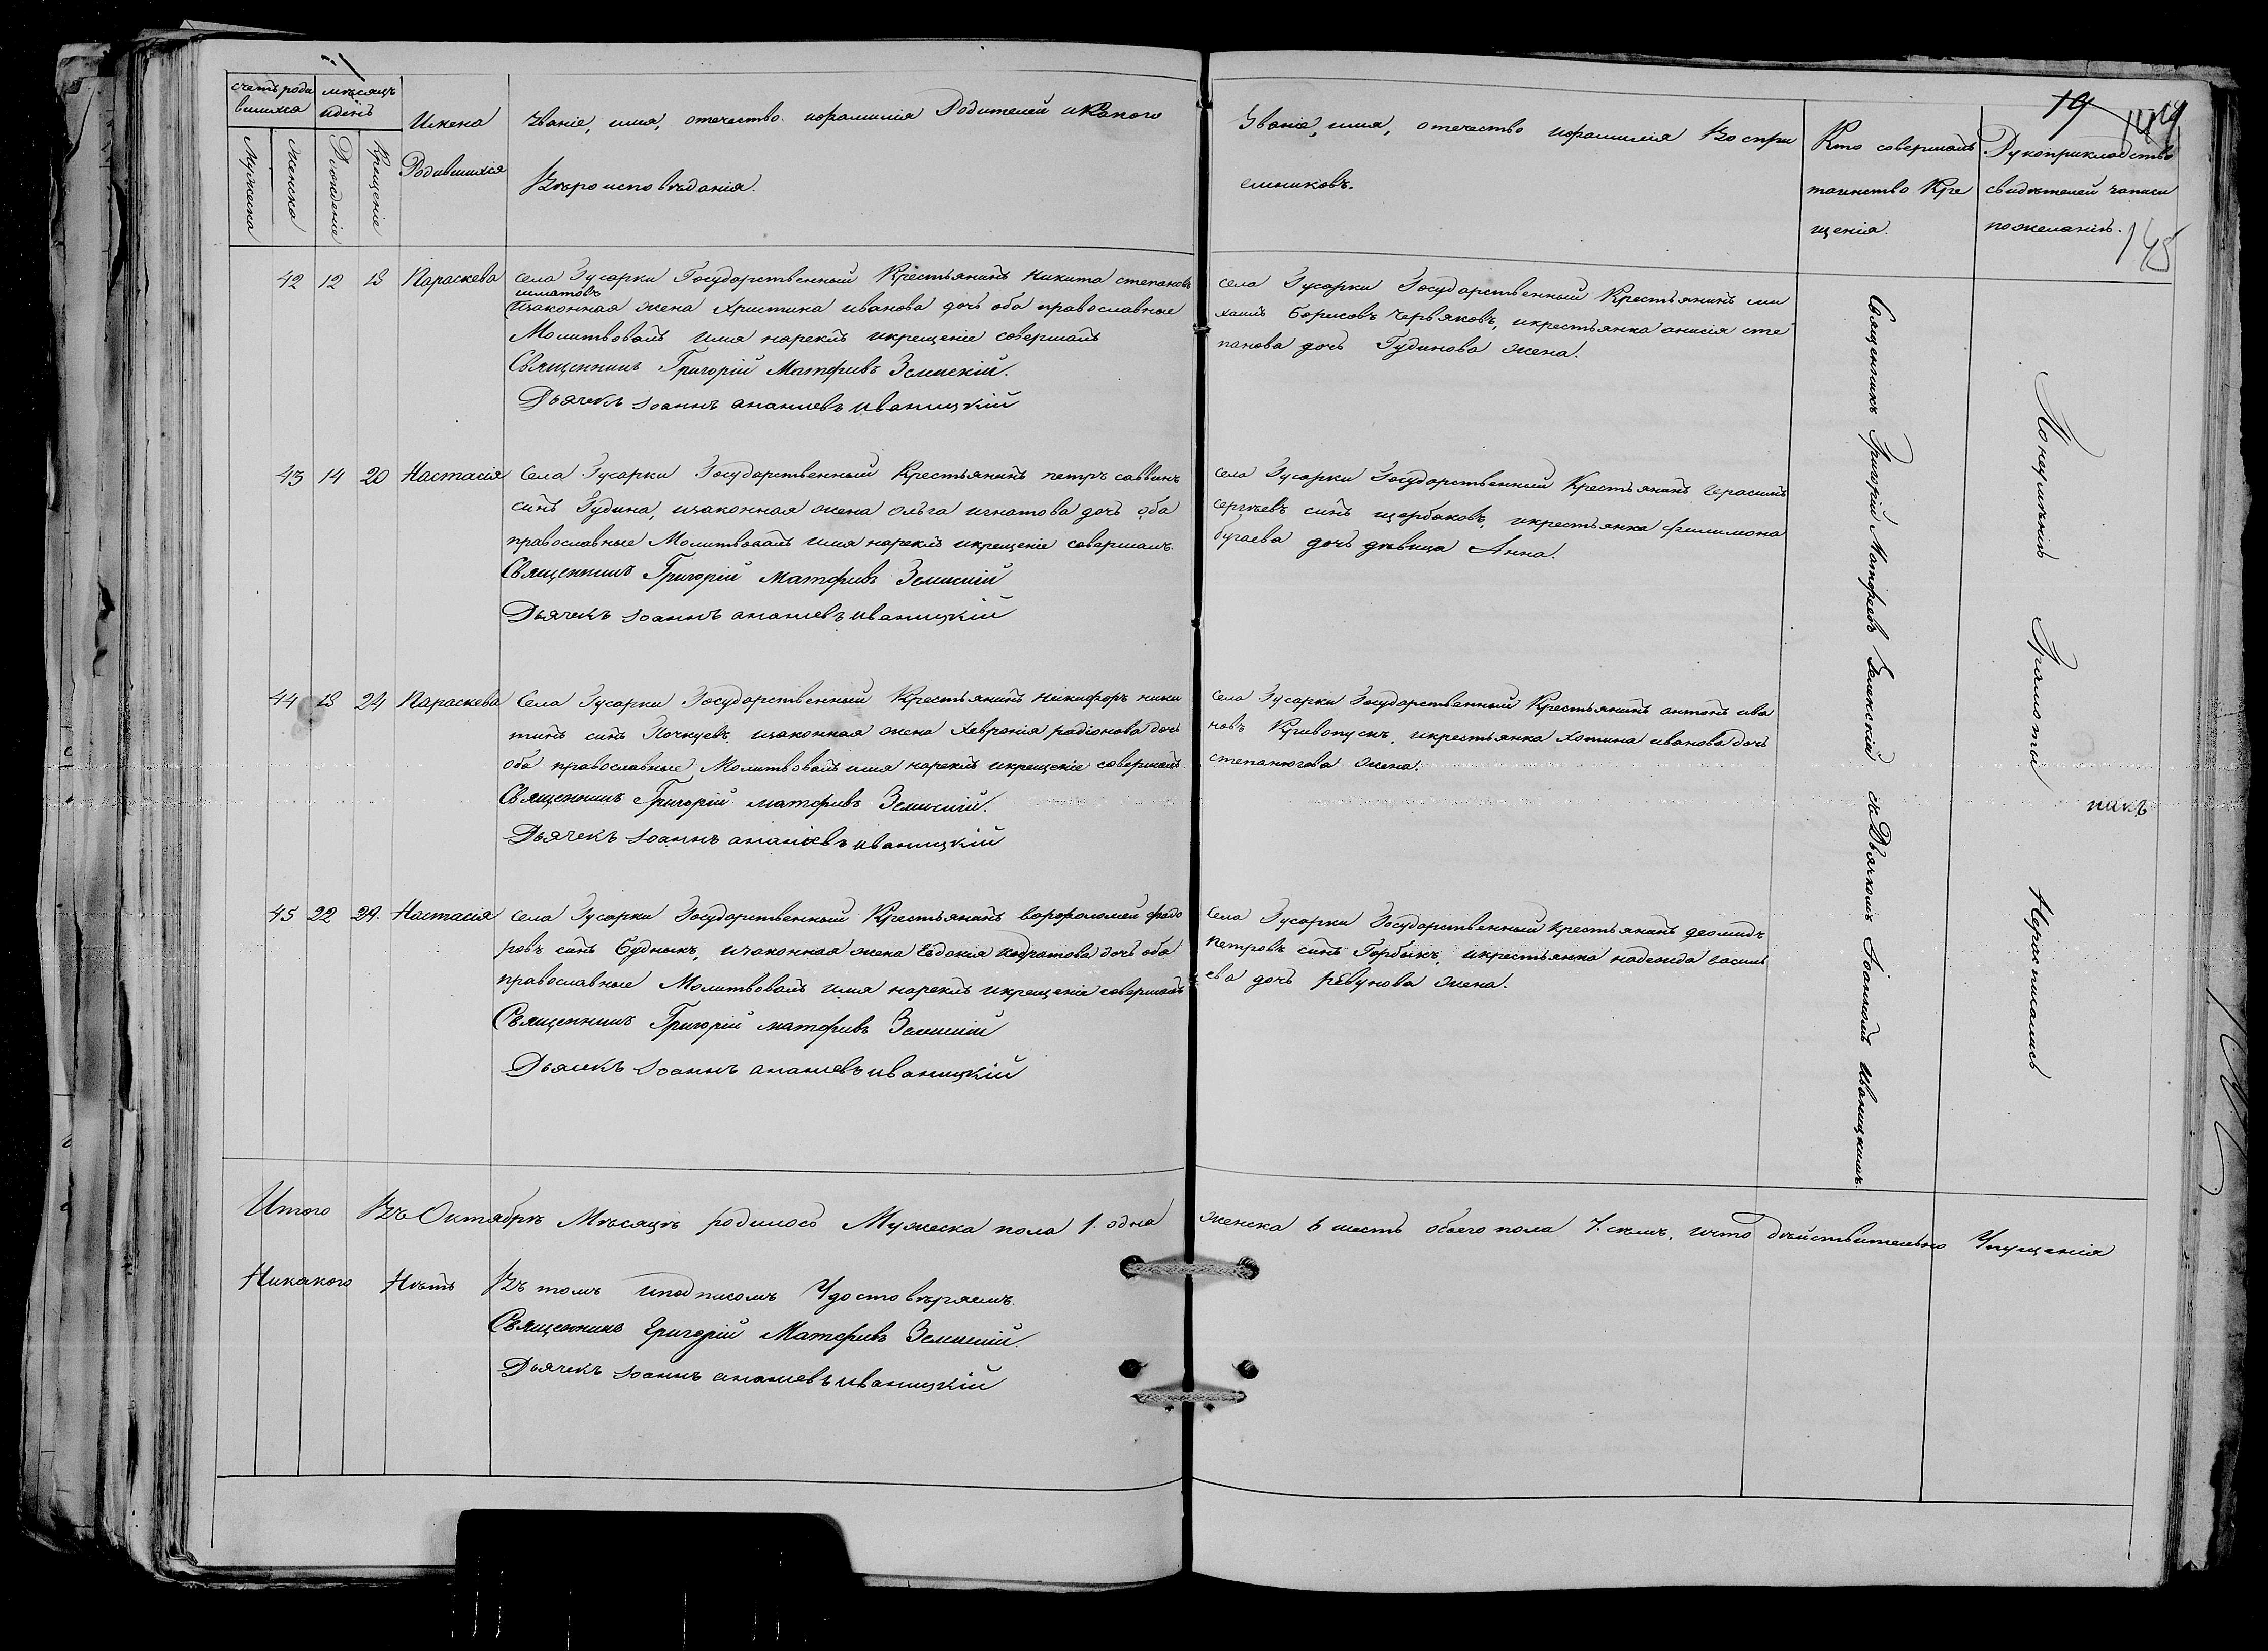 счетъ роди
вшихся
мѣсяцъ
идень
Мужеска
Женска
Рожденіе
Крещеніе
Имена
Родившихся
Званіе, имя, отечество ифамилія Родителей икакого
Вѣроисповѣданія.
Званіе, имя, отечество ифамилія Воспри
емниковъ.
Кто совершалъ
таинство Кре
щенія.
19
Рукоприкладство
свидѣтелей записи
пожеланію.
148
42 12 18 Параскева села Гусарки Государственный Крестьянинъ Никита степановъ
шматовъ
изаконная жена Христина иванова дочь оба православные
Молитвовалъ имя нарекъ икрещеніе совершалъ
Священникъ Григорій Матфѣевъ Зелинскій.
Дьячекъ Іоаннъ ананіевъ иваницкій
села Гусарки Государственный Крестьянинъ ми
хаилъ Борисовъ Червяковъ, икрестьянка анисія сте
панова дочь Гудинова жена.
43 14 20 Настасія Села Гусарки Государственный Крестьянинъ петръ саввинъ
синъ Гудина, изаконная жена Ольга игнатова дочь оба
православные Молитвовалъ имя нарекъ икрещеніе совершалъ
Священникъ Григорій Матфѣевъ Зелинскій
Дьячекъ Іоаннъ ананіевъ иваницкій
села Гусарки Государственный Крестьянинъ Герасимъ
сергѣевъ синъ щербаковъ, икрестьянка филимона
бугаева дочь дѣвица Анна.
44 18 24 Параскева Села Гусарки Государственный Крестьянинъ Никифоръ ники
тинъ синъ Почкуевъ изаконная жена Хевронія радіонова дочь
оба православные Молитвовалъ имя нарекъ икрещеніе совершалъ
Священникъ Григорій матфѣевъ Зелинскій.
Дьячекъ Іоаннъ ананіевъ иваницкій
села Гусарки Государственный Крестьянинъ антонъ ива
новъ Кривопускъ, икрестьянка Хотина иванова дочь
степанюгова жена.
45 22 29. Настасія села Гусарки Государственный Крестьянинъ ворфоломей федо
ровъ синъ Будныкъ, изаконная жена Евдокія кодратова дочь оба
православные Молитвовалъ имя нарекъ икрещеніе совершалъ
Священникъ Григорій матфѣевъ Зелинскій
Дьячекъ Іоаннъ ананіевъ иваницкій
Села Гусарки Государственный крестьянинъ деомидъ
Петровъ синъ Горбыкъ, икрестьянка надежда василь
ева дочь ревунова жена.
Священникъ Григорій Матфеевъ Зелинскій съ Дьячкомъ Іоанномъ иваницкимъ.
Понеумѣнію Грамоти Нерасписались
Итого Въ Октябрѣ Мѣсяцѣ родилось Мужеска пола 1. одна женска 6 шесть обоего пола 7. семъ, ичто дѣйствительно Упущенія
Никакого Нѣтъ Въ томъ иподписомъ Удостовѣряемъ.
Священникъ Григорій Матфѣевъ Зелинскій.
Дьячекъ Іоаннъ ананіевъ иваницкій